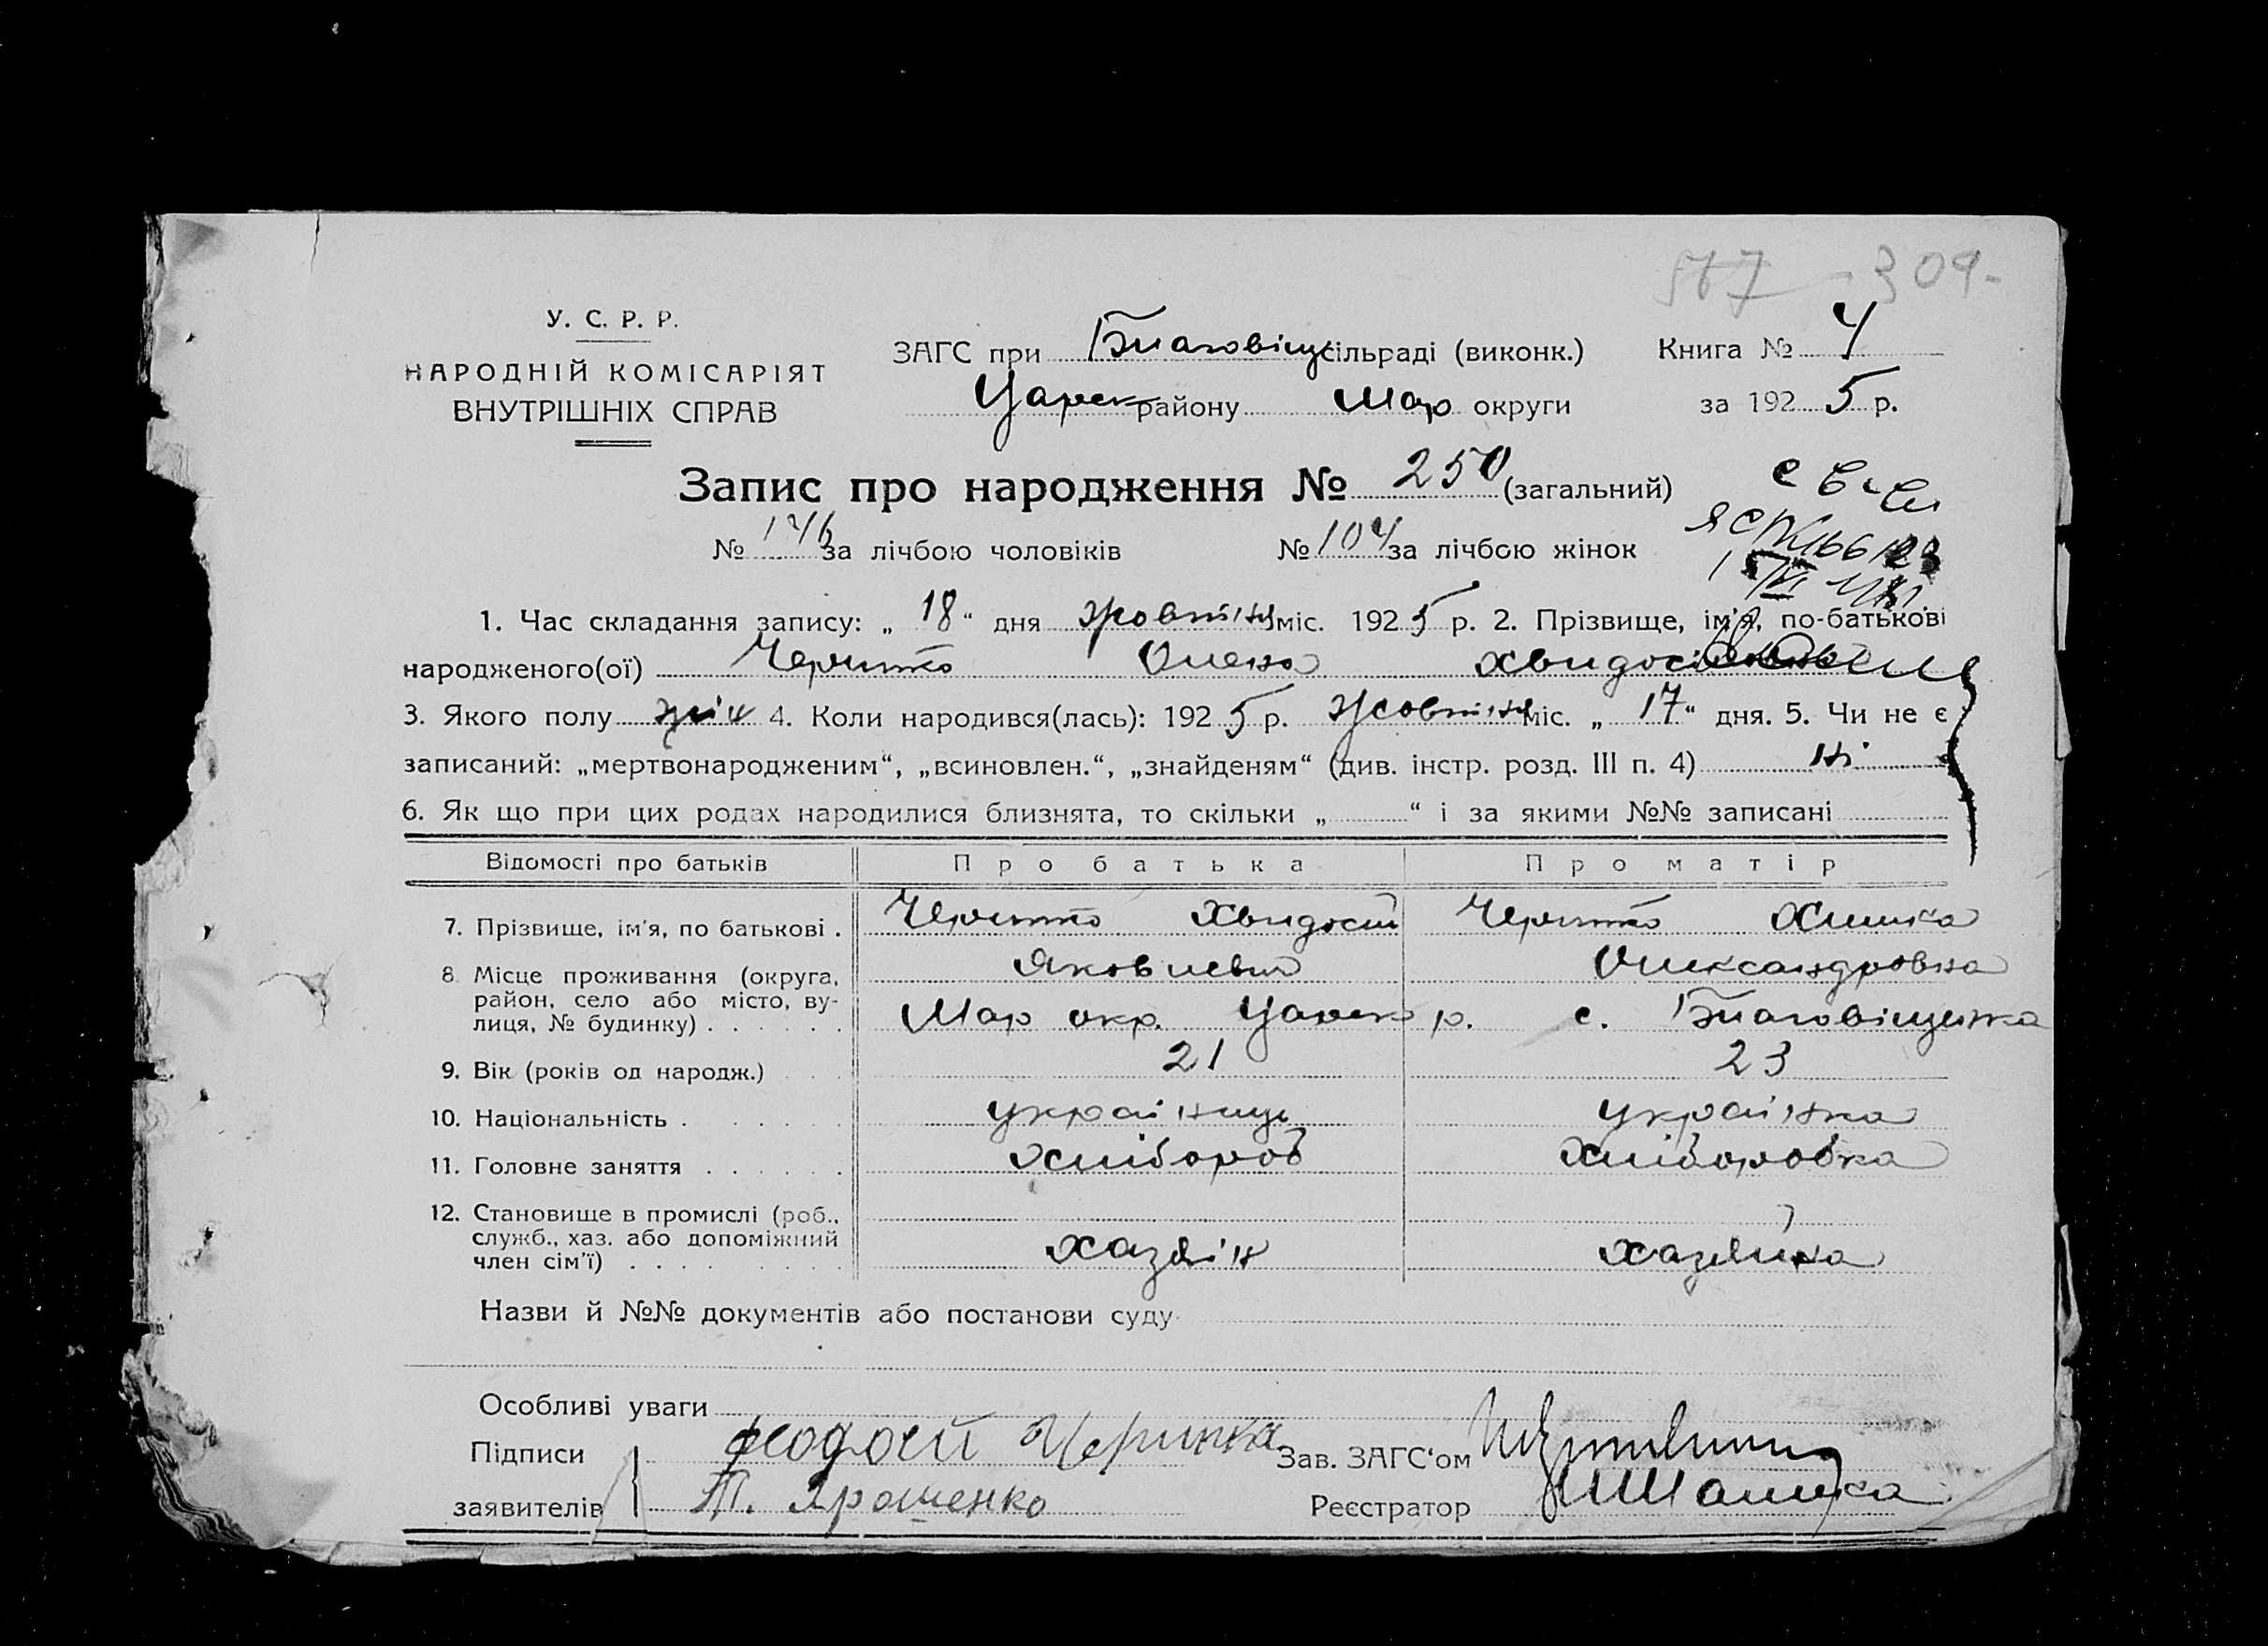 309-
У. С. Р. Р.
НАРОДНІЙ КОМІСАРІЯТ
ВНУТРІШНІХ СПРАВ
ЗАГС при Благовіщ сільраді (виконк.) Книга № 4
Царек району Мар округи за 1925 р.
Запис про народження № 250 (загальний)
№ 146 за лічбою чоловіків № 104 за лічбою жінок
1. Час складання запису: „ 18 “ дня жовтня міс. 1925 р. 2. Прізвище, ім'я, по-батькові
народженого(ої) Олена
3. Якого полу жін 4. Коли народився(лась): 1925 р. жовтня міс. „ 17 “ дня. 5. Чи не є
записаний: „мертвонародженим“, „всиновлен.“, „знайденям“ (див. інстр. розд. III п. 4) ні
6. Як що при цих родах народилися близнята, то скільки „ “ і за якими №№ записані
Відомості про батьків Про батька Про матір
7. Прізвище, ім'я, по батькові . Хвидосій
8. Місце проживання (округа, Яковлевич Олександровна
район, село або місто, ву-
лиця, № будинку) . . . . . . Мар окр. Царек р. с. Благовіщенка
9. Вік (років од народж.) . . . 21 23
10. Національність . . . . . . українць українка
11. Головне заняття . . . . . . хлібороб хліборобка
12. Становище в промислі (роб.,
служб., хаз. або допоміжний
член сім'ї) . . . . . . . . . хазяін хазяйка
Назви й №№ документів або постанови суду
Особливі уваги
Підписи Феодосій Зав. ЗАГС'ом
заявителів Т. Ярошенко Реєстратор